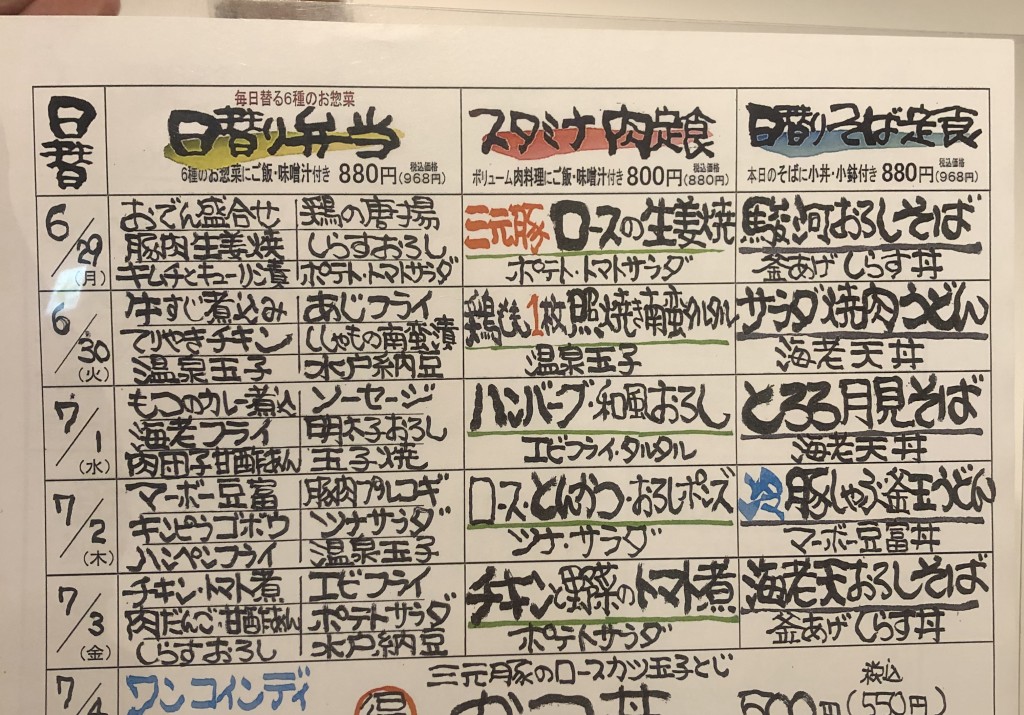 日替
毎日替る6種のお惣菜
日替り弁当
6種のお惣菜にご飯・味噌汁付き 880円 税込価格(968円)
スタミナ肉定食
ボリューム肉料理にご飯・味噌汁付き 800円 税込価格(880円)
日替りそば定食
本日のそばに小丼・小鉢付き 880円 税込価格(968円)
6/29(月)
おでん盛合せ 鶏の唐揚
豚肉生姜焼 しらすおろし
キムチとキューリ漬 ポテト・トマトサラダ
三元豚 ロースの生姜焼
ポテト・トマトサラダ
駿河おろしそば
釜あげしらす丼
6/30(火)
牛すじ煮込み あじフライ
てりやきチキン ししゃもの南蛮漬
温泉玉子 水戸納豆
鶏もも1枚照焼き南蛮タルタル
温泉玉子
サラダ焼肉うどん
海老天丼
7/1(水)
もつのカレー煮込 ソーセージ
海老フライ 明太子おろし
肉団子甘酢あん 玉子焼
ハンバーグ・和風おろし
エビフライ・タルタル
とろろ月見そば
海老天丼
7/2(木)
マーボー豆富 豚肉プルコギ
キンピラゴボウ ツナサラダ
ハンペンフライ 温泉玉子
ロース・とんかつ・おろしポンズ
ツナ・サラダ
豚しゃぶ釜玉うどん
マーボー豆富丼
7/3(金)
チキン・トマト煮 エビフライ
肉だんご・甘酢あん ポテトサラダ
しらすおろし 水戸納豆
チキンと野菜のトマト煮
ポテトサラダ
海老天おろしそば
釜あげしらす丼
7/4
ワンコインディ
三元豚のロースカツ玉子とじ
かつ丼
税込
500円(550円)